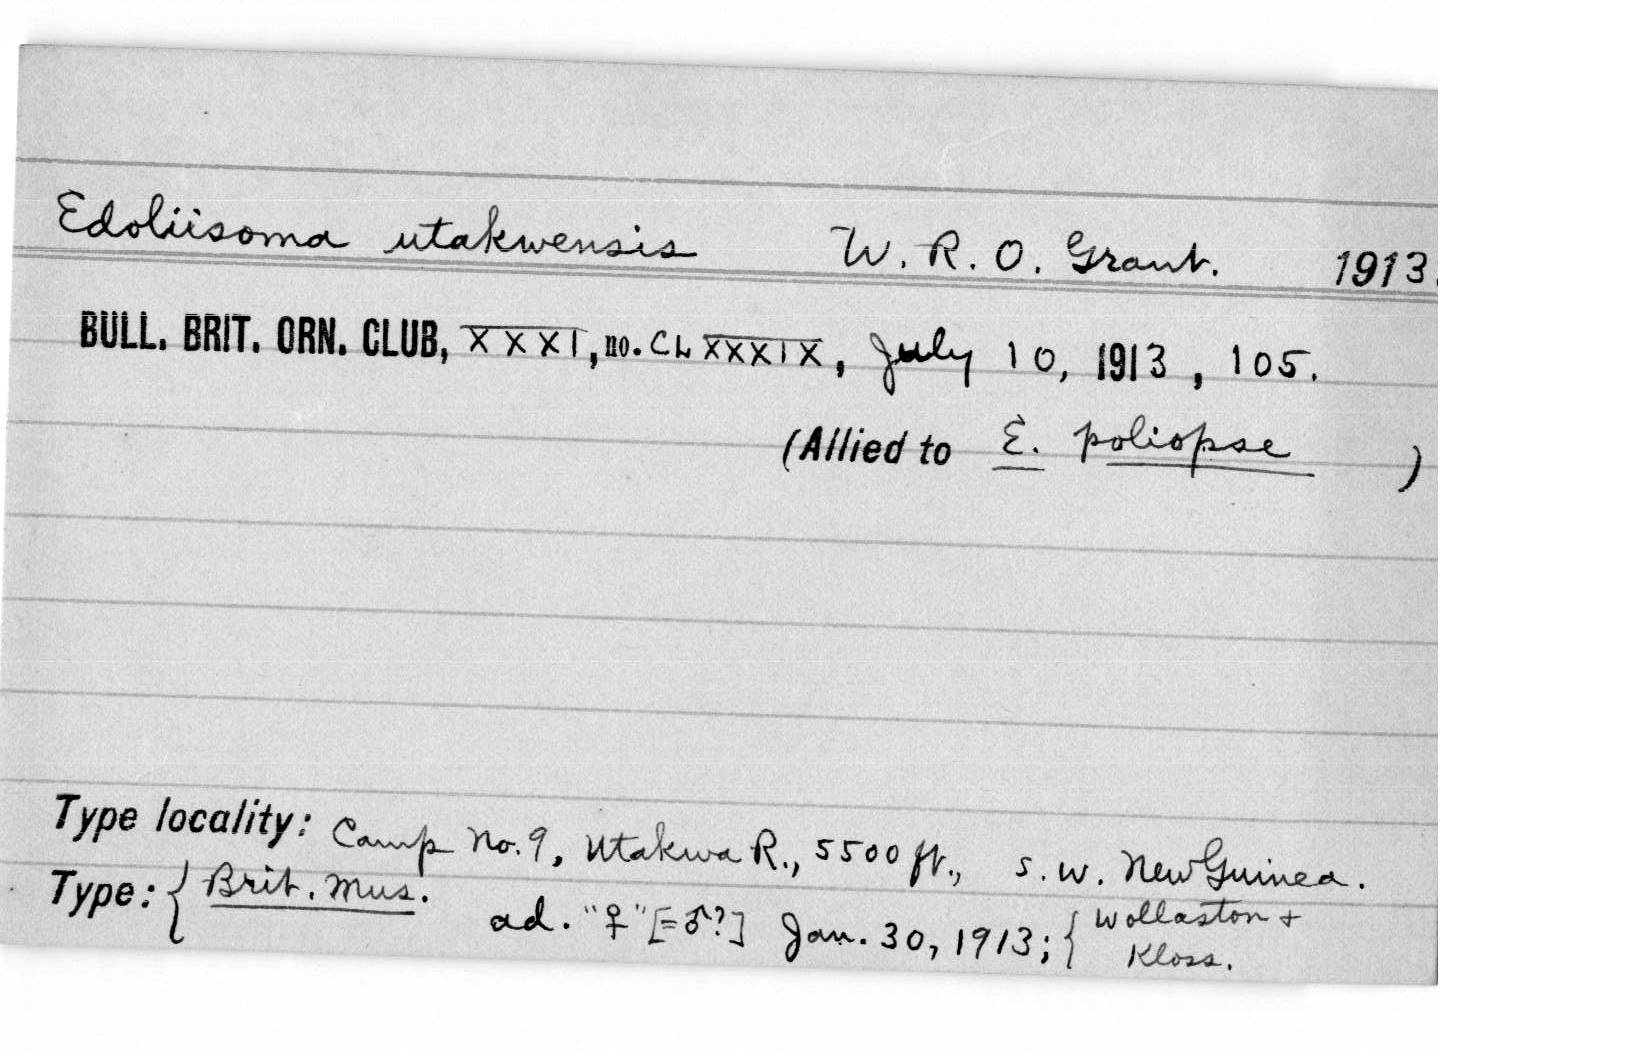 Edoliisoma utakwensis W. R. O. Grant. 1913.
BULL. BRIT. ORN. CLUB, XXXI, no. CLXXXIX, July 10, 1913, 105.
(Allied to E. poliopse )
Type locality: Camp No. 9, Utakwa R., 5500 ft., S. W. New Guinea.
Type: { Brit. Mus. ad. "♀" [=♂?] Jan. 30, 1913; { Wollaston +
Kloss.